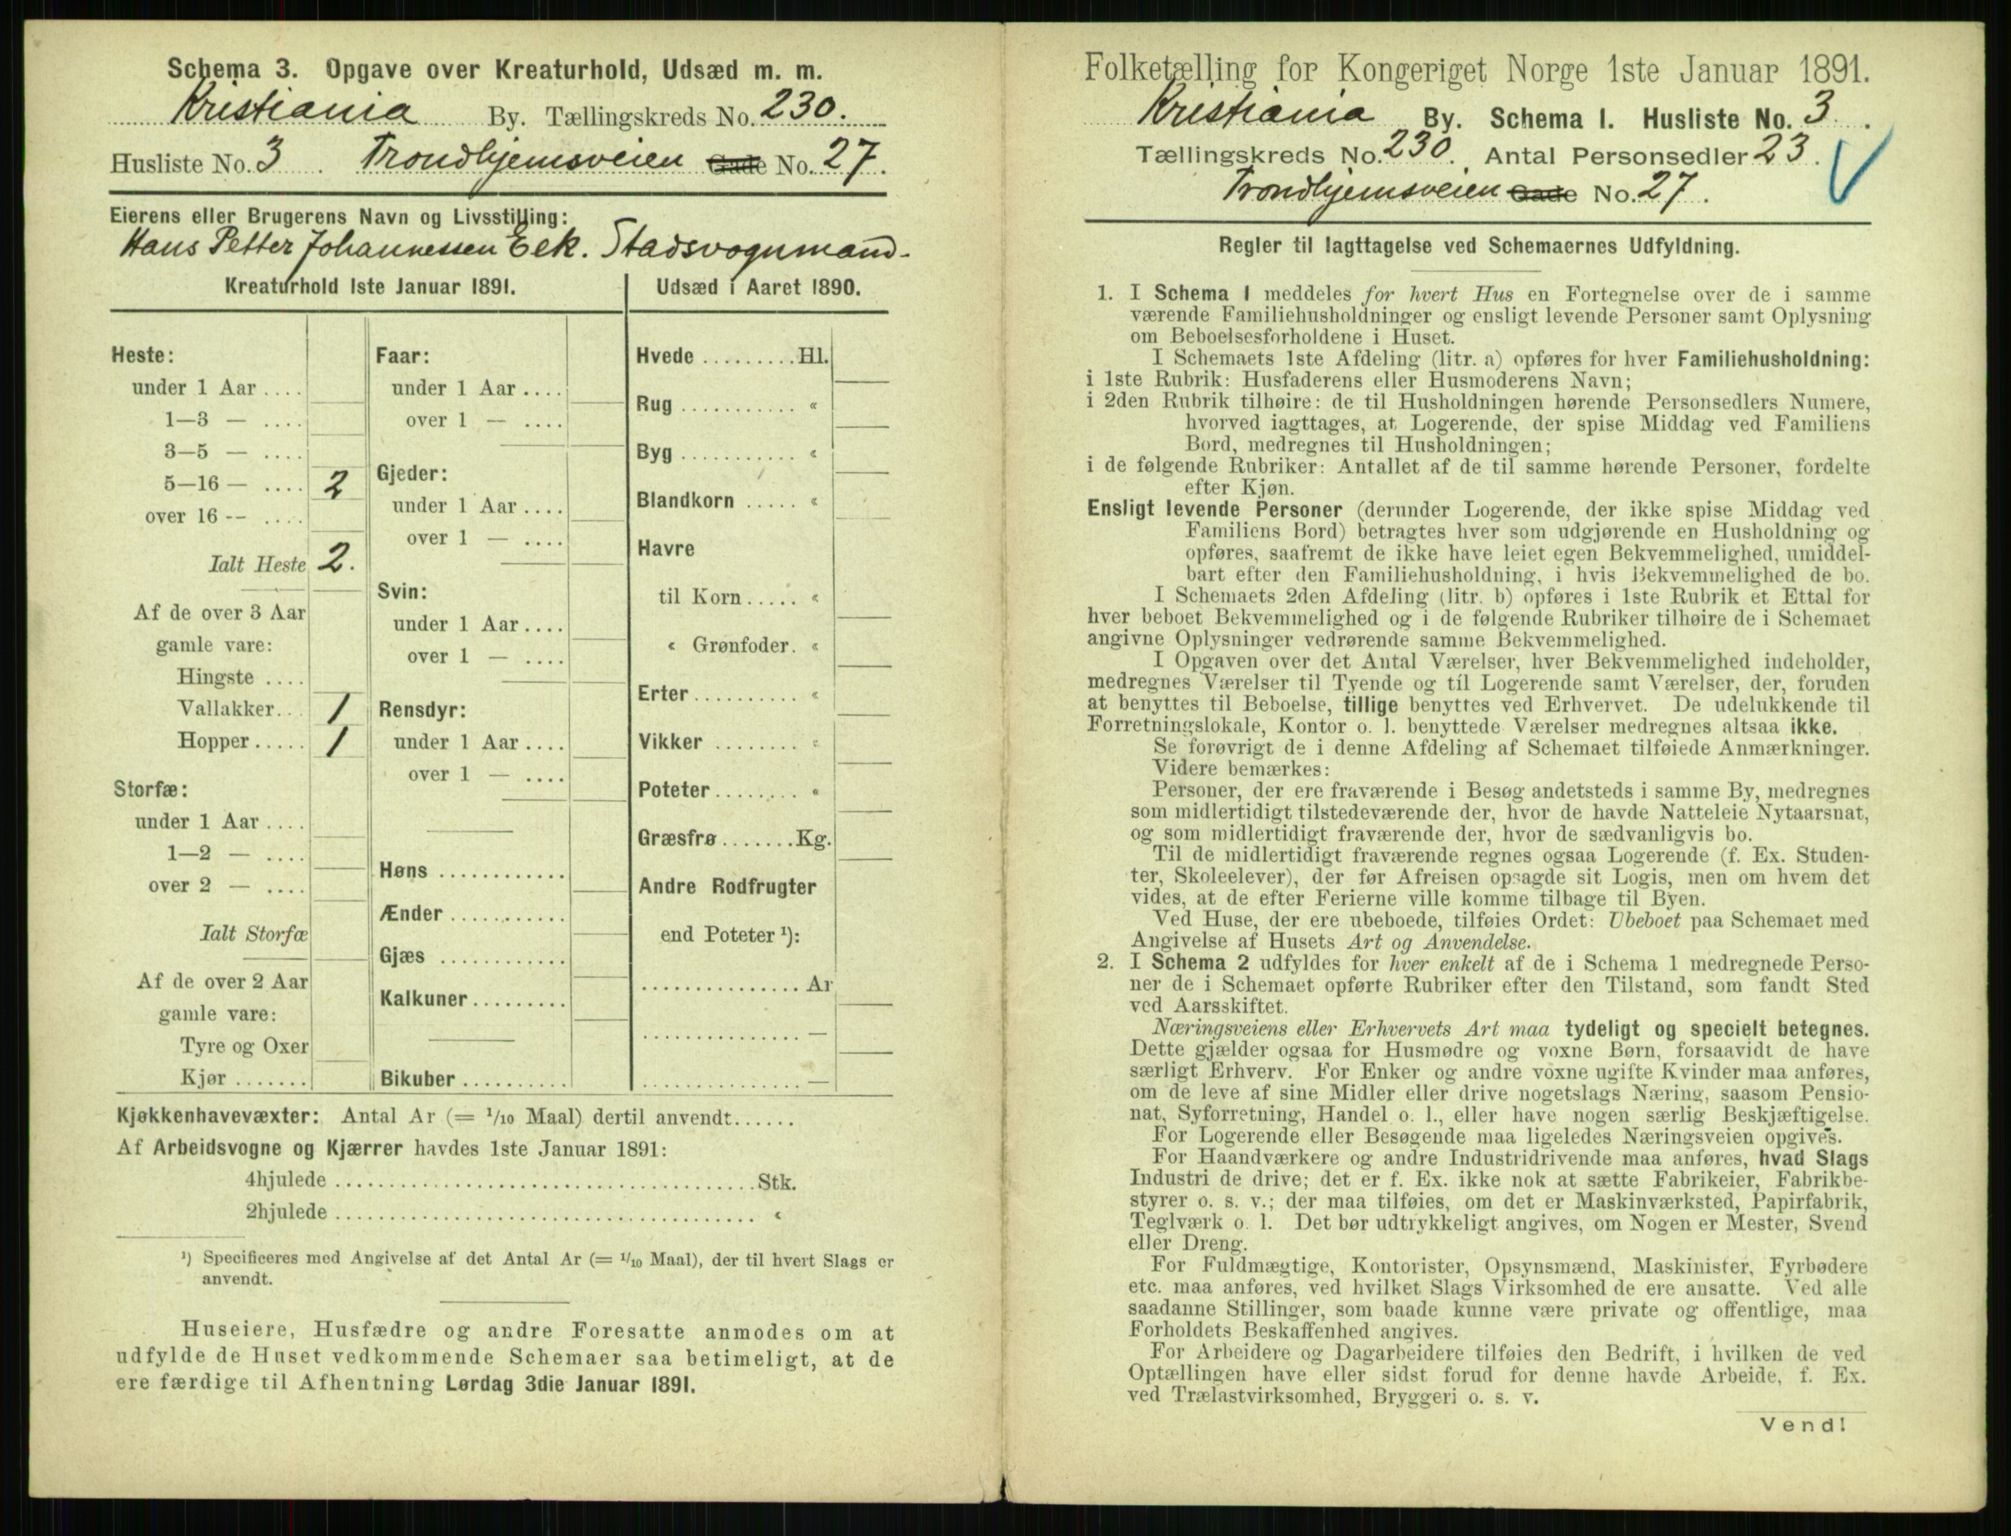 Schema 3. Opgave over Kreaturhold, Udsæd m. m.
Kristiania By. Tællingskreds No. 230.
Husliste No. 3 Trondhjemsveien Gade No. 27.
Eierens eller Brugerens Navn og Livsstilling:
Hans Petter Johannessen Eek. Stadsvognmand.
Kreaturhold 1ste Januar 1891.
Heste:
under 1 Aar ....
1—3 — ....
3—5 — ....
5—16 — .... 2
over 16 -- ....
Ialt Heste 2.
Af de over 3 Aar
gamle vare:
Hingste ....
Vallakker.. 1
Hopper ..... 1
Storfæ:
under 1 Aar ....
1—2 — ....
over 2 — ....
Ialt Storfæ
Af de over 2 Aar
gamle vare:
Tyre og Oxer
Kjør .......
Faar:
under 1 Aar ....
over 1 — ....
Gjeder:
under 1 Aar ....
over 1 — ....
Svin:
under 1 Aar ....
over 1 — ....
Rensdyr:
under 1 Aar ....
over 1 — ....
Høns ............
Ænder ...........
Gjæs ............
Kalkuner .........
Bikuber ..........
Udsæd i Aaret 1890.
Hvede .........Hl.
Rug ........... «
Byg ........... «
Blandkorn ..... «
Havre
til Korn ..... «
« Grønfoder. «
Erter .......... «
Vikker ........ «
Poteter ........ «
Græsfrø .......Kg.
Andre Rodfrugter
end Poteter ¹):
............... Ar
............... —
............... —
Kjøkkenhavevæxter: Antal Ar (= 1/10 Maal) dertil anvendt......
Af Arbeidsvogne og Kjærrer havdes 1ste Januar 1891:
4hjulede ......................................Stk.
2hjulede ...................................... «
¹) Specificeres med Angivelse af det Antal Ar (= 1/10 Maal), der til hvert Slags er
anvendt.
Huseiere, Husfædre og andre Foresatte anmodes om at
udfylde de Huset vedkommende Schemaer saa betimeligt, at de
ere færdige til Afhentning Lørdag 3die Januar 1891.
Folketælling for Kongeriget Norge 1ste Januar 1891.
Kristiania By. Schema 1. Husliste No. 3.
Tællingskreds No. 230. Antal Personsedler 23.
Trondhjemsveien Gade No. 27.
Regler til Iagttagelse ved Schemaernes Udfyldning.
1. I Schema 1 meddeles for hvert Hus en Fortegnelse over de i samme
værende Familiehusholdninger og ensligt levende Personer samt Oplysning
om Beboelsesforholdene i Huset.
I Schemaets 1ste Afdeling (litr. a) opføres for hver Familiehusholdning:
i 1ste Rubrik: Husfaderens eller Husmoderens Navn;
i 2den Rubrik tilhøire: de til Husholdningen hørende Personsedlers Numere,
hvorved iagttages, at Logerende, der spise Middag ved Familiens
Bord, medregnes til Husholdningen;
i de følgende Rubriker: Antallet af de til samme hørende Personer, fordelte
efter Kjøn.
Ensligt levende Personer (derunder Logerende, der ikke spise Middag ved
Familiens Bord) betragtes hver som udgjørende en Husholdning og
opføres, saafremt de ikke have leiet egen Bekvemmelighed, umiddel-
bart efter den Familiehusholdning, i hvis Bekvemmelighed de bo.
I Schemaets 2den Afdeling (litr. b) opføres i 1ste Rubrik et Ettal for
hver beboet Bekvemmelighed og i de følgende Rubriker tilhøire de i Schemaet
angivne Oplysninger vedrørende samme Bekvemmelighed.
I Opgaven over det Antal Værelser, hver Bekvemmelighed indeholder,
medregnes Værelser til Tyende og til Logerende samt Værelser, der, foruden
at benyttes til Beboelse, tillige benyttes ved Erhvervet. De udelukkende til
Forretningslokale, Kontor o. l. benyttede Værelser medregnes altsaa ikke.
Se forøvrigt de i denne Afdeling af Schemaet tilføiede Anmærkninger.
Videre bemærkes:
Personer, der ere fraværende i Besøg andetsteds i samme By, medregnes
som midlertidigt tilstedeværende der, hvor de havde Natteleie Nytaarsnat,
og som midlertidigt fraværende der, hvor de sædvanligvis bo.
Til de midlertidigt fraværende regnes ogsaa Logerende (f. Ex. Studen-
ter, Skoleelever), der før Afreisen opsagde sit Logis, men om hvem det
vides, at de efter Ferierne ville komme tilbage til Byen.
Ved Huse, der ere ubeboede, tilføies Ordet: Ubeboet paa Schemaet med
Angivelse af Husets Art og Anvendelse.
2. I Schema 2 udfyldes for hver enkelt af de i Schema 1 medregnede Perso-
ner de i Schemaet opførte Rubriker efter den Tilstand, som fandt Sted
ved Aarsskiftet.
Næringsveiens eller Erhvervets Art maa tydeligt og specielt betegnes.
Dette gjælder ogsaa for Husmødre og voxne Børn, forsaavidt de have
særligt Erhverv. For Enker og andre voxne ugifte Kvinder maa anføres,
om de leve af sine Midler eller drive nogetslags Næring, saasom Pensio-
nat, Syforretning, Handel o. l., eller have nogen særlig Beskjæftigelse.
For Logerende eller Besøgende maa ligeledes Næringsveien opgives.
For Haandværkere og andre Industridrivende maa anføres, hvad Slags
Industri de drive; det er f. Ex. ikke nok at sætte Fabrikeier, Fabrikbe-
styrer o. s. v.; der maa tilføies, om det er Maskinværksted, Papirfabrik,
Teglværk o. l. Det bør udtrykkeligt angives, om Nogen er Mester, Svend
eller Dreng.
For Fuldmægtige, Kontorister, Opsynsmænd, Maskinister, Fyrbødere
etc. maa anføres, ved hvilket Slags Virksomhed de ere ansatte. Ved alle
saadanne Stillinger, som baade kunne være private og offentlige, maa
Forholdets Beskaffenhed angives.
For Arbeidere og Dagarbeidere tilføies den Bedrift, i hvilken de ved
Optællingen have eller sidst forud for denne havde Arbeide, f. Ex.
ved Trælastvirksomhed, Bryggeri o. s. v.
Vend!